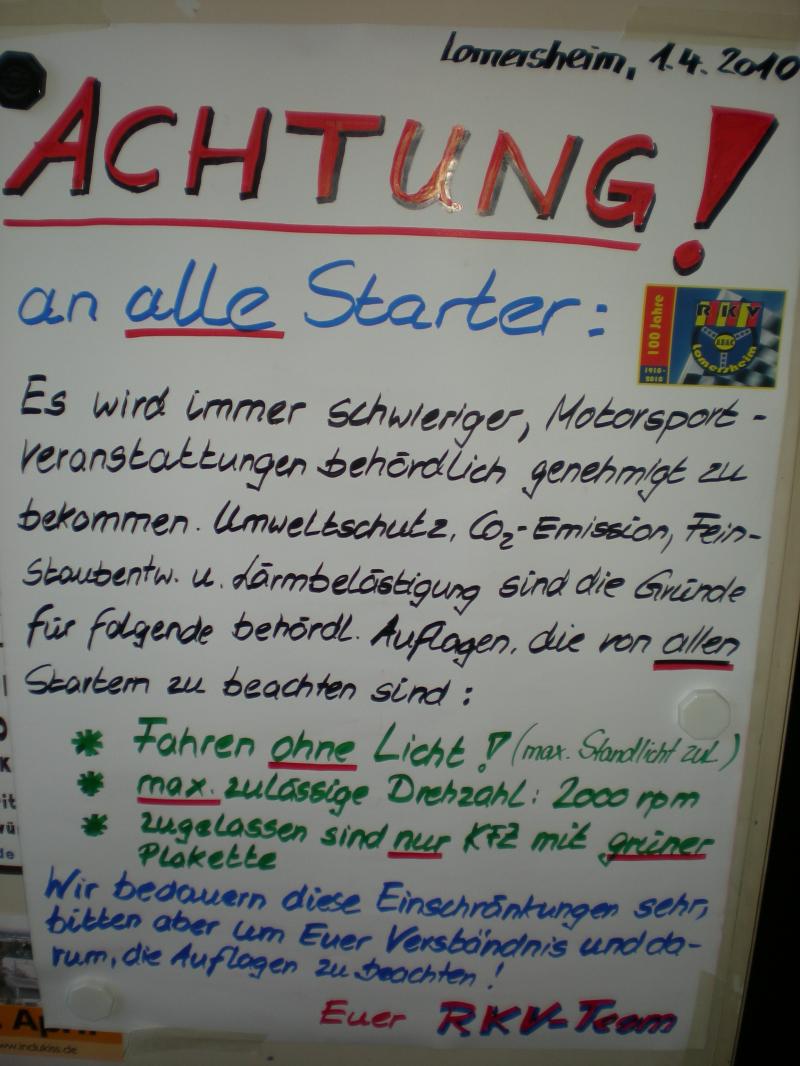 Lomersheim, 1.4.2010
ACHTUNG!
an alle Starter:
100 Jahre
1910-
2010
RKV
ADAC
Lomersheim
Es wird immer schwieriger, Motorsport-
veranstaltungen behördlich genehmigt zu
bekommen. Umweltschutz, CO2-Emission, Fein-
staubentw. u. Lärmbelästigung sind die Gründe
für folgende behördl. Auflagen, die von allen
Startern zu beachten sind:
* Fahren ohne Licht! (max. Standlicht zul.)
* max. zulässige Drehzahl: 2000 rpm
* zugelassen sind nur KFZ mit grüner
Plakette
Wir bedauern diese Einschränkungen sehr,
bitten aber um Euer Verständnis und da-
rum, die Auflagen zu beachten!
Euer RKV-Team
. April
www.indukiss.de